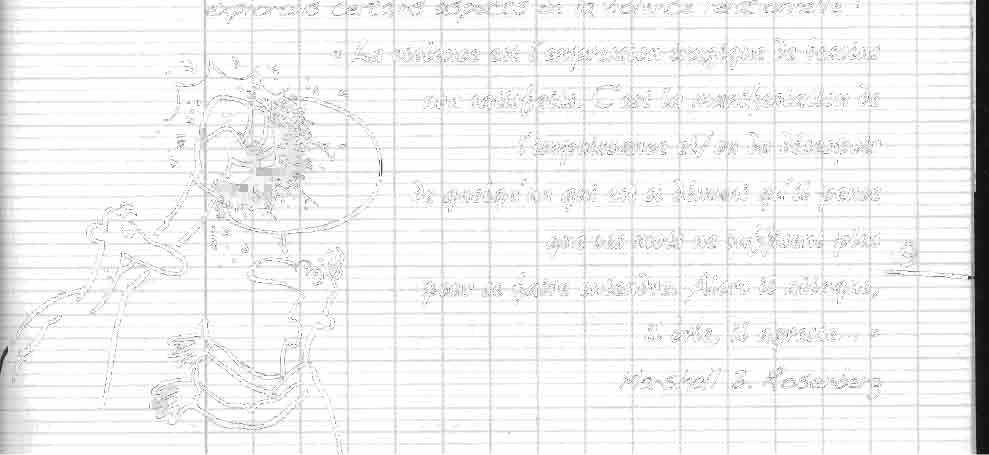 explorais certains aspects de la violence relationnelle :
« La violence est l'expression tragique de besoins
non satisfaits. C'est la manifestation de
l'impuissance et/ou du désespoir
de quelqu'un qui est si démuni qu'il pense
que ses mots ne suffisent plus
pour se faire entendre. Alors il attaque,
il crie, il agresse... »
Marshall B. Rosenberg
9